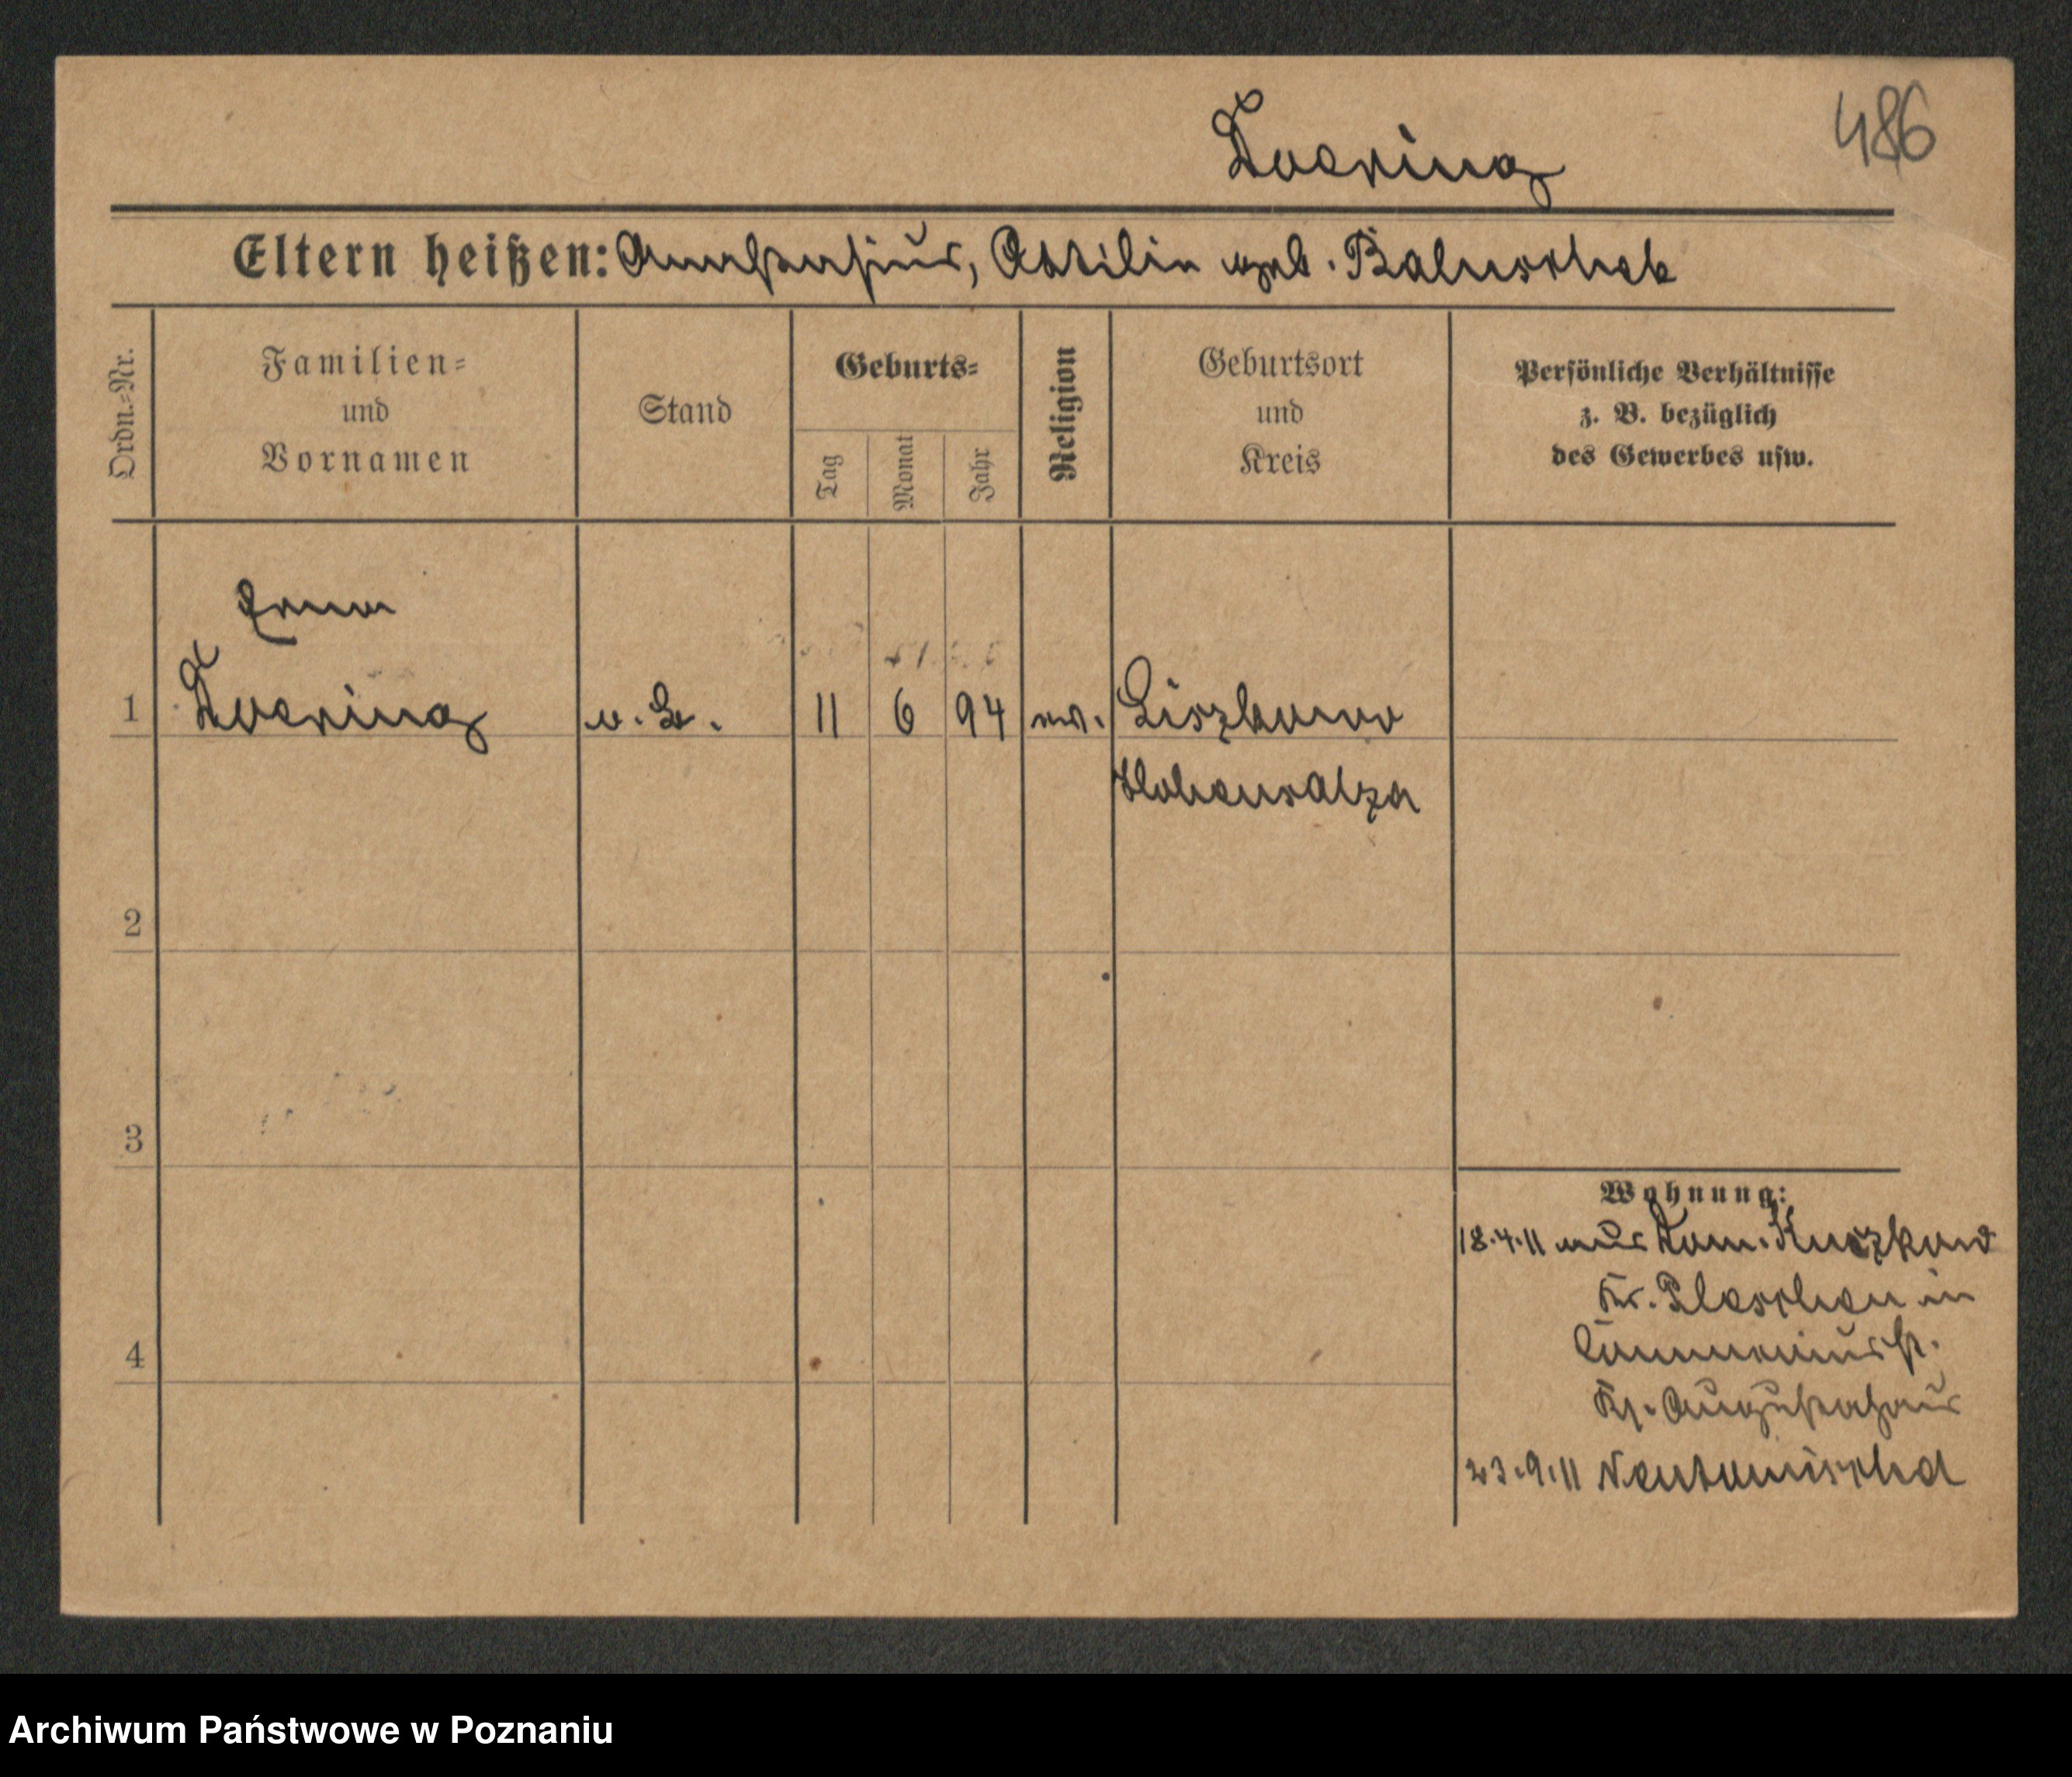 486
Doering
Eltern heißen: Anastasius, Ottilie geb. Baluschek
Ordn.=Nr.
Familien=
und
Vornamen
Stand
Geburts=
Tag
Monat
Jahr
Religion
Geburtsort
und
Kreis
Persönliche Verhältnisse
z. B. bezüglich
des Gewerbes usw.
Erna
1 Doering 11 6 94 ev. Liszkowo
Hohensalza
2
3
Wohnung:
18.4.11 aus Dom. Kuczkow
Kr. Pleschen in
4
Ks. Augustahaus
23.9.11 Neutomischel
Archiwum Państwowe w Poznaniu